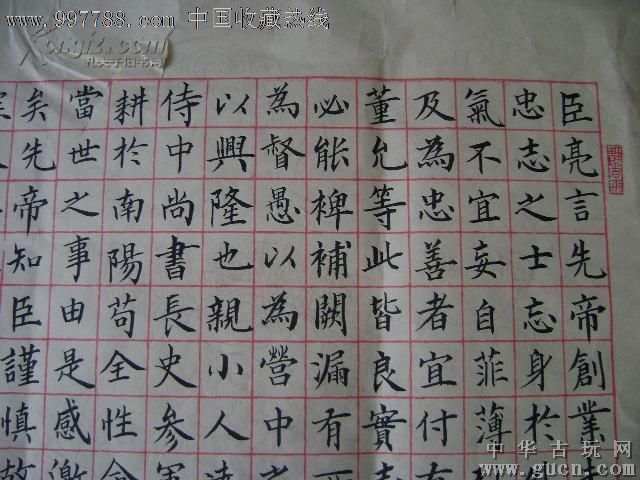 www.997788.com 中国收藏热线
孔夫子旧书网
臣亮言先帝創業
忠志之士忘身於
氣不宜妄自菲薄
及為忠善者宜付有
董允等此皆良實志
必能裨補闕漏有
為督愚以為營中
以興隆也親小人遠
侍中尚書長史參軍
耕於南陽苟全性命
當世之事由是感激
矣先帝知臣謹慎故
中华古玩网
www.gucn.com